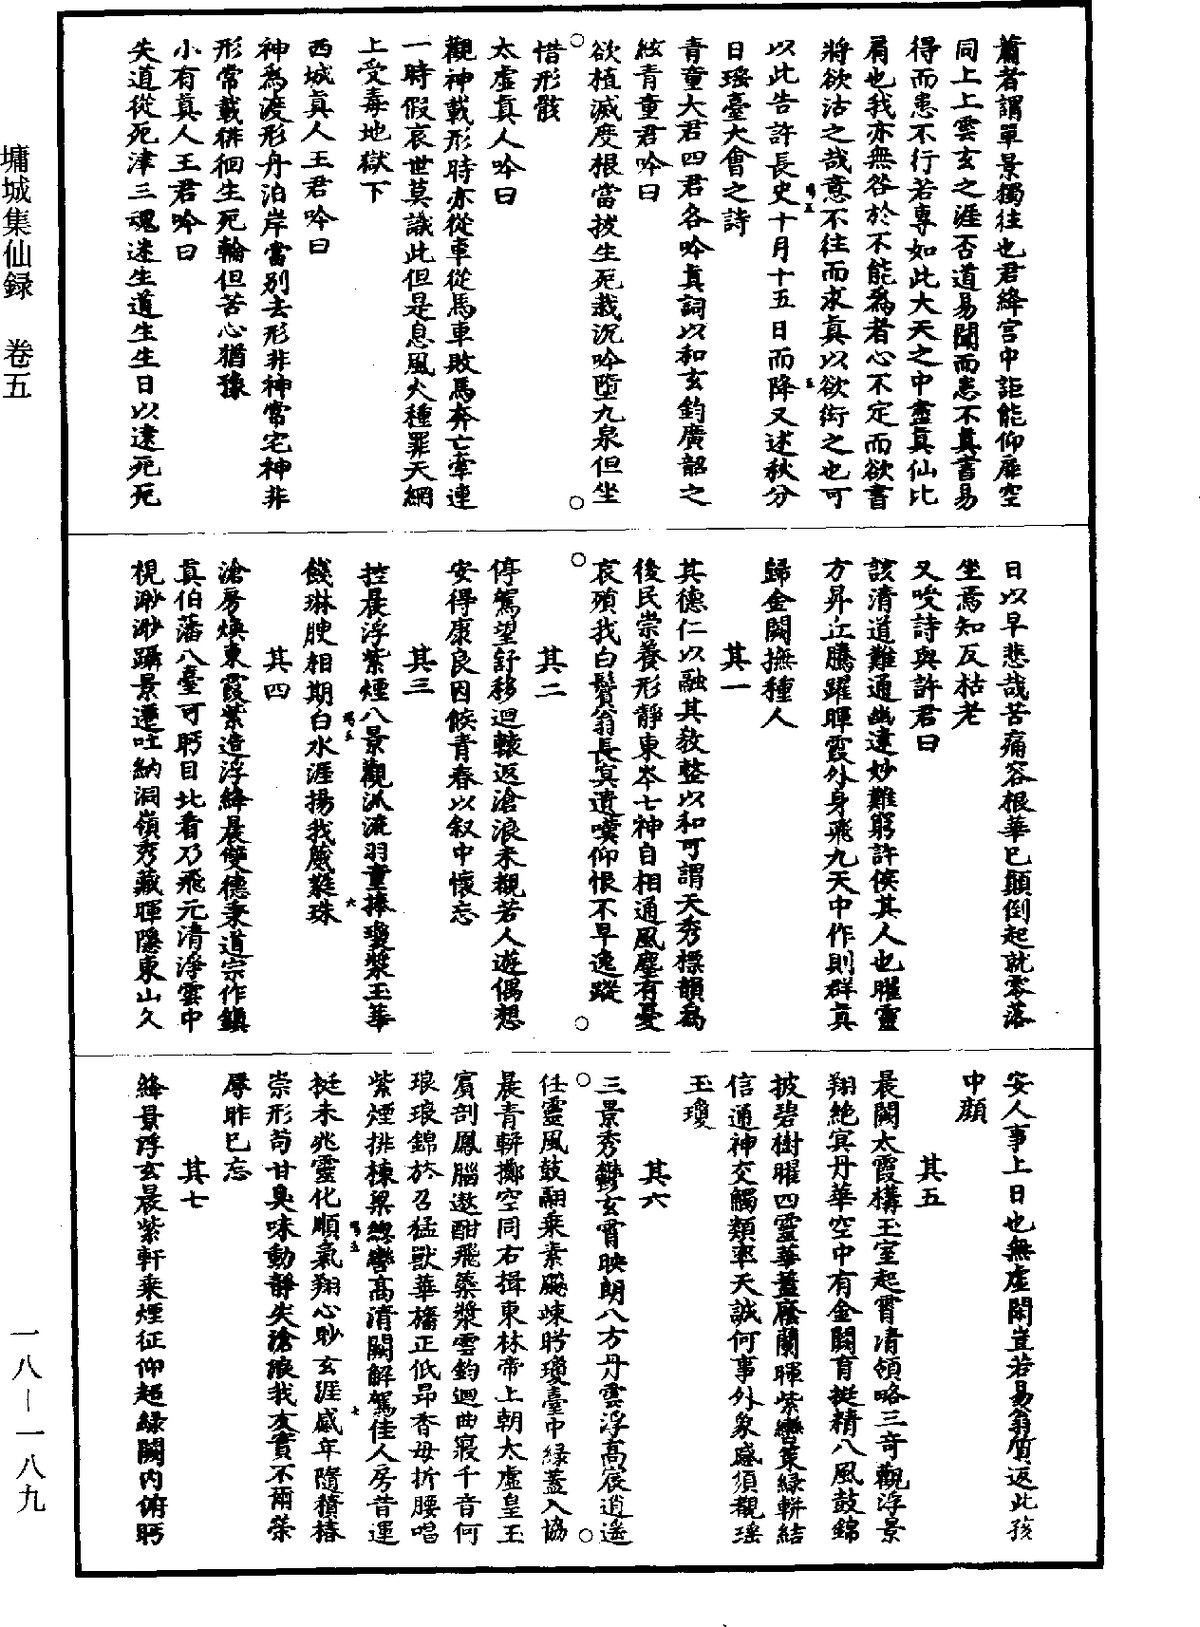 蕭者謂單景獨往也君絳宮中詎能仰飛空
同上上雲玄之涯否道易聞而患不真書易
得而患不行若專如此大天之中盡真仙比
肩也我亦無咎於不能爲者心不定而欲書
將欲沽之哉意不往而求真以欲衒之也可
以此告許長史十月十五日而降又述秋分
日瑶臺大會之詩
青童大君四君各吟真詞以和玄鈞廣韶之
絃青童君吟曰
欲植滅度根當拔生死栽沉吟墮九泉但坐
惜形骸
太虛真人吟曰
觀神載形時亦從車從馬車敗馬奔亡牽連
一時假哀世莫識此但是息風火種罪天網
上受毒地獄下
西城真人王君吟曰
神爲渡形舟泊岸當別去形非神常宅神非
形常載徘徊生死輪但苦心猶豫
小有真人王君吟曰
失道從死津三魂迷生道生生日以遠死死
日以早悲哉苦痛容根華已顛倒起就零落
坐焉知反枯老
又喻詩與許君曰
該清道難通幽達妙難窮許侯其人也曜靈
方昇丘騰躍暉霞外身飛九天中作則群真
歸金闕撫種人
其一
其德仁以融其教整以和可謂天秀標韻爲
後民崇養形靜東岑七神自相通風塵有憂
哀殞我白鬢翁長冥遺嘆仰恨不早逸蹤
其二
停駕望舒移迴轅返滄浪未觀若人遊偶想
安得康良因候青春以叙中懷忘
其三
控晨浮紫煙八景觀汎流羽童捧瓊漿玉華
餞琳腴相期白水涯揚我萎蕤珠
其四
滄房煥東霞紫造浮絳晨雙德秉道宗作鎮
真伯藩八臺可眄目北看乃飛元清淨雲中
視渺渺躡景遷吐納洞嶺秀藏暉隱東山久
安人事上日也無虛閑豈若易翁質返此孩
中顔
其五
晨闕太霞構玉室起霄清領略三奇觀浮景
翔絶冥丹華空中有金闕育挺精八風鼓錦
披碧樹曜四靈華蓋廕蘭暉紫轡策綠軿結
信通神交觸類率天誠何事外象感須覩瑶
玉瓊
其六
三景秀鬱玄霄映朗八方丹雲浮高宸逍遥
任靈風鼓翮乘素飇竦眄瓊臺中緑蓋入協
晨青軿擲空同右揖東林帝上朝太虛皇玉
賓剖鳳腦遨酣飛蘂漿雲鈞迴曲寢千音何
琅琅錦旍召猛獸華旛正低昂香母折腰唱
紫煙排棟梁總轡高清闕解駕佳人房昔運
挺未兆靈化順氣翔心眇玄涯感年隨積椿
崇形苟甘臭味動靜失滄浪我友實不爾榮
辱昨已忘
其七
絳景浮玄晨紫軒乘煙征仰超緑闕内俯眄
墉城集仙録　卷五
一八—一八九